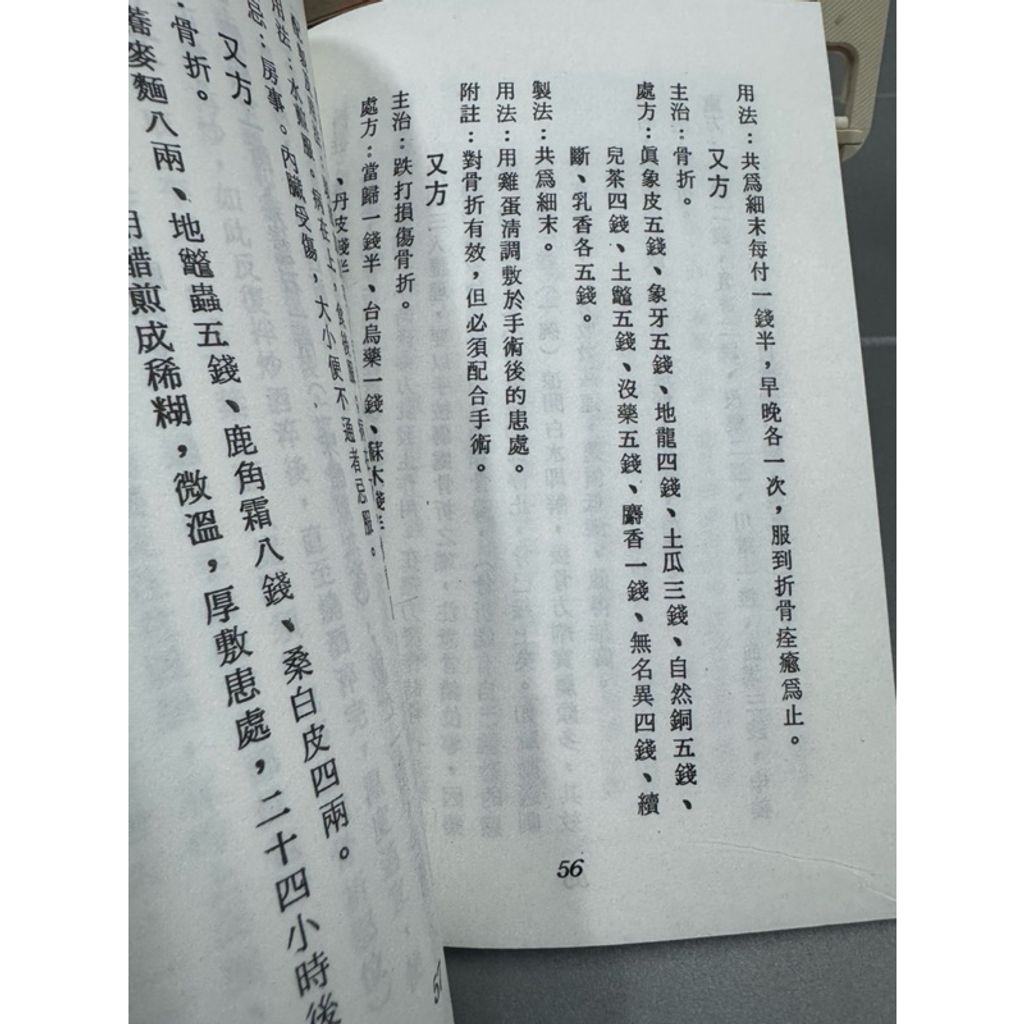 用法：共爲細末每付一錢半，早晚各一次，服到折骨痊癒爲止。
又方
主治：骨折。
處方：眞象皮五錢、象牙五錢、地龍四錢、土瓜三錢、自然銅五錢、
兒茶四錢、土鼈五錢、沒藥五錢、麝香一錢、無名異四錢、續
斷、乳香各五錢。
製法：共爲細末。
用法：用雞蛋淸調敷於手術後的患處。
附註：對骨折有效，但必須配合手術。
又方
主治：跌打損傷骨折。
處方：當歸一錢半、台烏藥一錢、蘇木錢半
、丹皮錢半
56
用法：水煎服。
忌：房事。內臟受傷，大小便不通者忌服。
又方
：骨折。
蕎麥麵八兩、地鼈蟲五錢、鹿角霜八錢、桑白皮四兩。
用醋煎成稀糊，微溫，厚敷患處，二十四小時後
57